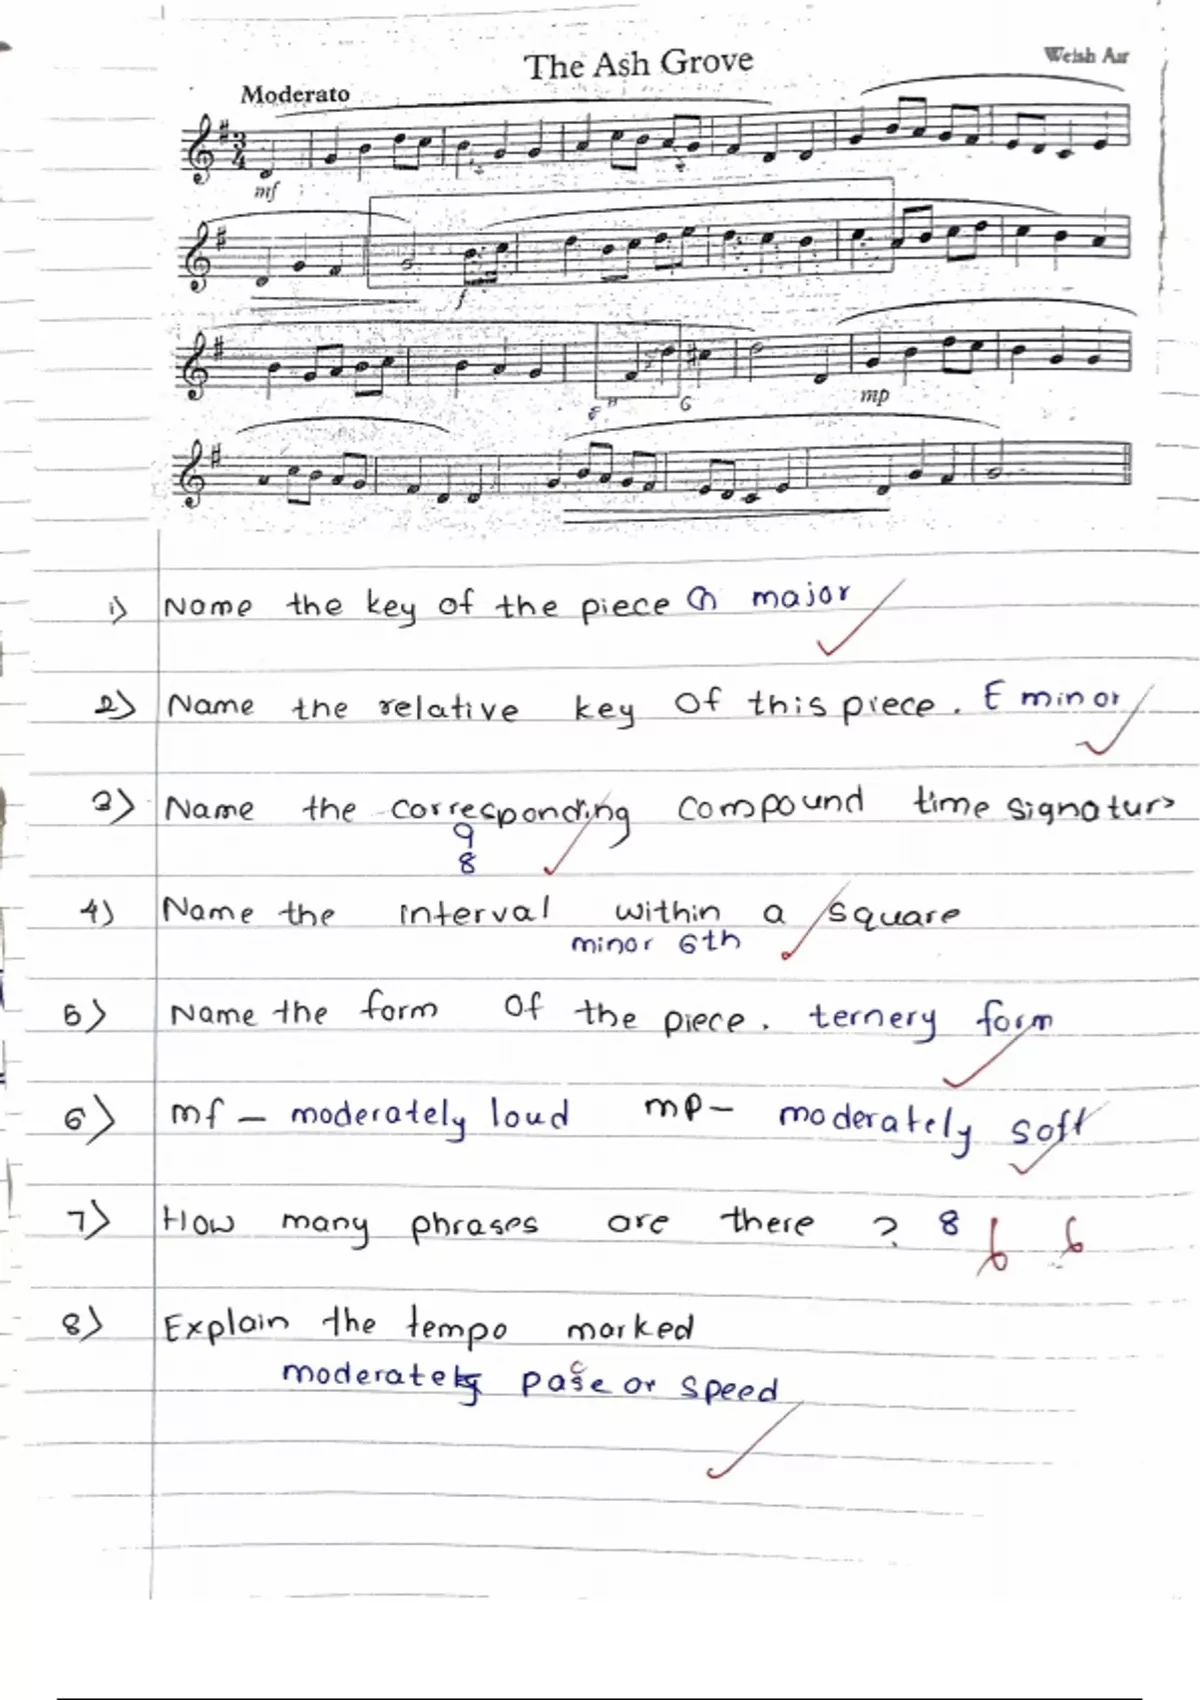 The Ash Grove
Welsh Air
Moderato
mf
f
mp
6
1) Name the key of the piece G major
2) Name the relative key of this piece. E minor
3) Name the corresponding compound time signature
9
8
4) Name the interval within a square
minor 6th
5) Name the form of the piece. ternery form
6) mf - moderately loud mp - moderately soft
7) How many phrases are there ? 8 6 6
8) Explain the tempo marked
moderately pace or speed